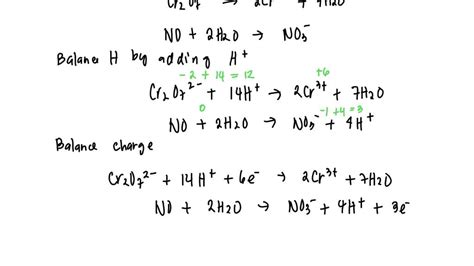 Cr₂O₇²⁻ → 2Cr³⁺ + 7H₂O
NO + 2H₂O → NO₃⁻
Balance H by adding H⁺
-2 + 14 = 12 +6
Cr₂O₇²⁻ + 14H⁺ → 2Cr³⁺ + 7H₂O
0 -1+4=3
NO + 2H₂O → NO₃⁻ + 4H⁺
Balance charge
Cr₂O₇²⁻ + 14H⁺ + 6e⁻ → 2Cr³⁺ + 7H₂O
NO + 2H₂O → NO₃⁻ + 4H⁺ + 3e⁻